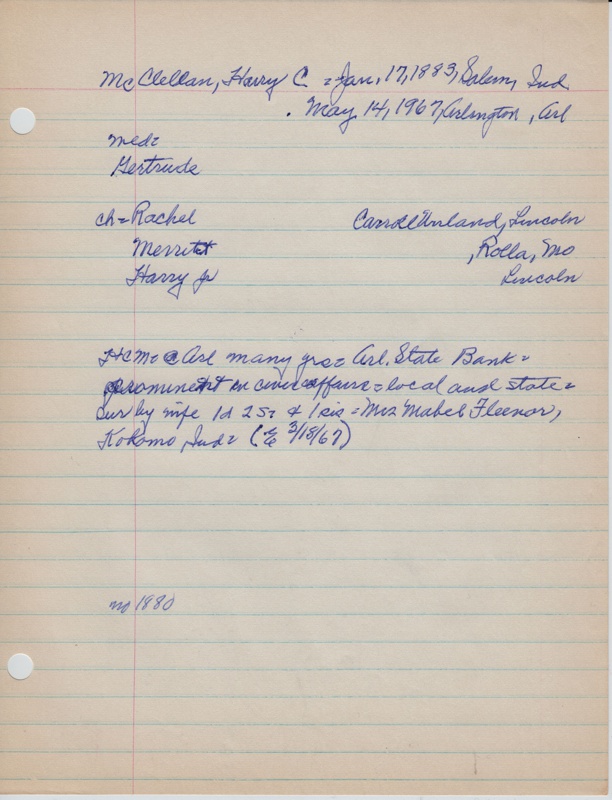 McClellan, Harry C = Jan, 17, 1883, Salem, Ind
. May 14, 1967, Arlington, Arl
med=
Gertrude
ch = Rachel Carroll Unland, Lincoln
Merritt , Rolla, Mo
Harry Jr Lincoln
HCM = Arl many yrs = Arl. State Bank =
prominent in civic affairs = local and state =
Sur by wife 1d 2s = & 1 sis = Mrs Mabel Fleenor,
Kokomo, Ind = ( 3/18/67)
no 1880